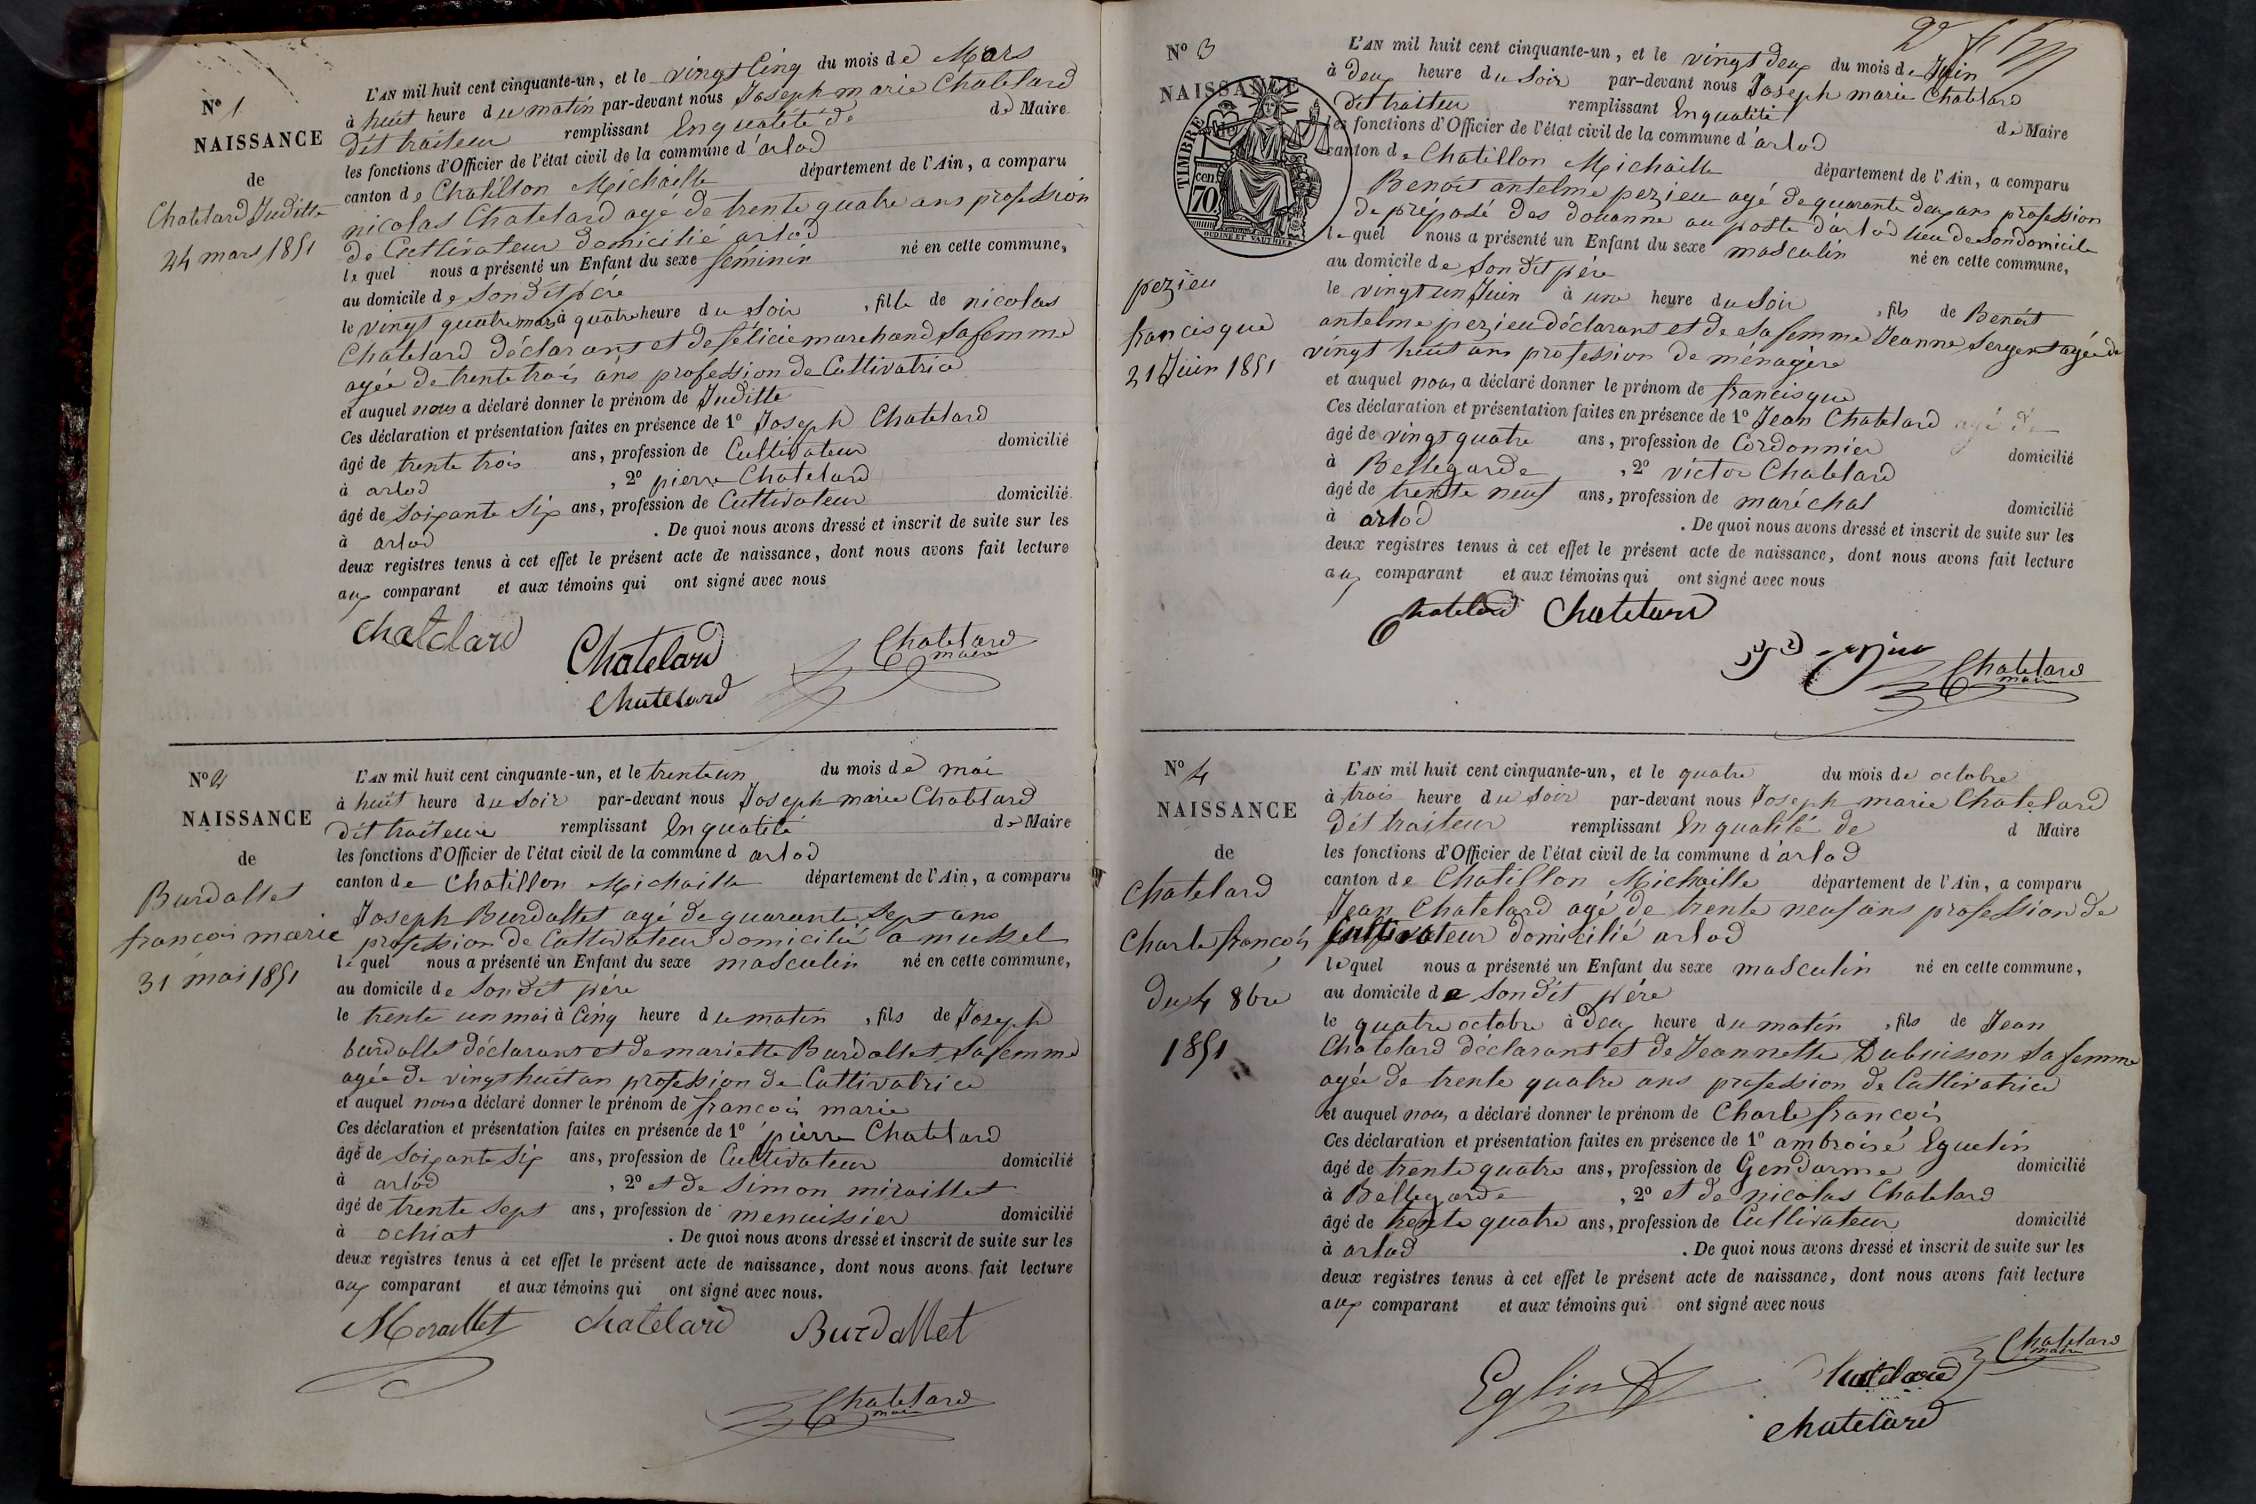 N° 1
NAISSANCE
de
Chatelard Juditte
24 mars 1851
L'AN mil huit cent cinquante-un, et le vingt Cinq du mois de Mars
à huit heure du matin par-devant nous Joseph marie Chatelard
dit traiteur remplissant En qualité de de Maire
les fonctions d'Officier de l'état civil de la commune d'arlod
canton de Chatillon Michaille département de l'Ain, a comparu
nicolas Chatelard agé de trente quatre ans profession
de Cultivateur domicilié arlod
lequel nous a présenté un Enfant du sexe feminin né en cette commune,
au domicile de son dit père
le vingt quatre mars à quatre heure du soir , fille de nicolas
Chatelard déclarant et de félicie marchand sa femme
agée de trente trois ans profession de Cultivatrice
et auquel nous a déclaré donner le prénom de Juditte
Ces déclaration et présentation faites en présence de 1° Joseph Chatelard
âgé de trente trois ans, profession de Cultivateur domicilié
à arlod , 2° pierre Chatelard
âgé de soixante six ans, profession de Cultivateur domicilié
à arlod . De quoi nous avons dressé et inscrit de suite sur les
deux registres tenus à cet effet le présent acte de naissance, dont nous avons fait lecture
aux comparant et aux témoins qui ont signé avec nous
Chatelard Chatelard Chatelard
maire
Chatelard
N° 2
NAISSANCE
de
Burdallet
francois marie
31 mai 1851
L'AN mil huit cent cinquante-un, et le trente un du mois de mai
à huit heure du soir par-devant nous Joseph marie Chatelard
dit traiteur remplissant En qualité de Maire
les fonctions d'Officier de l'état civil de la commune d arlod
canton de Chatillon Michaille département de l'Ain, a comparu
Joseph Burdallet agé de quarante sept ans
profession de Cultivateur domicilié a mussel
lequel nous a présenté un Enfant du sexe masculin né en cette commune,
au domicile de son dit père
le trente un mai à Cinq heure du matin , fils de Joseph
burdallet déclarant et de mariette Burdallet sa femme
agée de vingt huit an profession de Cultivatrice
et auquel nous a déclaré donner le prénom de francois marie
Ces déclaration et présentation faites en présence de 1° pierre Chatelard
âgé de soixante six ans, profession de Cultivateur domicilié
à arlod , 2° et de Simon miraillet
âgé de trente sept ans, profession de menuissier domicilié
à ochiat . De quoi nous avons dressé et inscrit de suite sur les
deux registres tenus à cet effet le présent acte de naissance, dont nous avons fait lecture
aux comparant et aux témoins qui ont signé avec nous.
Miraillet Chatelard Burdallet
Chatelard
maire
N° 3
NAISSANCE
TIMBRE
cen.
70.
pezieu
francisque
21 Juin 1851
L'AN mil huit cent cinquante-un, et le vingt deux du mois de Juin
à deux heure du soir par-devant nous Joseph marie Chatelard
dit traiteur remplissant En qualité de Maire
les fonctions d'Officier de l'état civil de la commune d'arlod
canton de Chatillon Michaille département de l'Ain, a comparu
Benoit antelme pezieu agé de quarante deux ans profession
de préposé des douanne au poste d'arlod lieu de son domicile
lequel nous a présenté un Enfant du sexe masculin né en cette commune,
au domicile de son dit père
le vingt un Juin à une heure du soir , fils de Benoit
antelme pezieu déclarant et de sa femme Jeanne Sergent agée de
vingt huit ans profession de ménagère
et auquel nous a déclaré donner le prénom de francisque
Ces déclaration et présentation faites en présence de 1° Jean Chatelard agé de
âgé de vingt quatre ans, profession de Cordonnier domicilié
à Bellegarde , 2° victor Chatelard
âgé de trente neuf ans, profession de maréchal domicilié
à arlod . De quoi nous avons dressé et inscrit de suite sur les
deux registres tenus à cet effet le présent acte de naissance, dont nous avons fait lecture
aux comparant et aux témoins qui ont signé avec nous
Chatelard Chatelard
Chatelard
maire
N° 4
NAISSANCE
de
Chatelard
Charle francois
du 4 8bre
1851
L'AN mil huit cent cinquante-un, et le quatre du mois de octobre
à trois heure du soir par-devant nous Joseph marie Chatelard
dit traiteur remplissant En qualité de d Maire
les fonctions d'Officier de l'état civil de la commune d'arlod
canton de Chatillon Michaille département de l'Ain, a comparu
Jean Chatelard agé de trente neuf ans profession de
Cultivateur domicilié arlod
lequel nous a présenté un Enfant du sexe masculin né en cette commune,
au domicile de son dit père
le quatre octobre à deux heure du matin , fils de Jean
Chatelard déclarant et de Jeannette Dubuisson sa femme
agée de trente quatre ans profession de Cultivatrice
et auquel nous a déclaré donner le prénom de Charle francois
Ces déclaration et présentation faites en présence de 1° ambroise Eguelin
âgé de trente quatre ans, profession de Gendarme domicilié
à Bellegarde , 2° et de nicolas Chatelard
âgé de trente quatre ans, profession de Cultivateur domicilié
à arlod . De quoi nous avons dressé et inscrit de suite sur les
deux registres tenus à cet effet le présent acte de naissance, dont nous avons fait lecture
aux comparant et aux témoins qui ont signé avec nous
Chatelard
maire
Eglin Chatelard
Chatelard